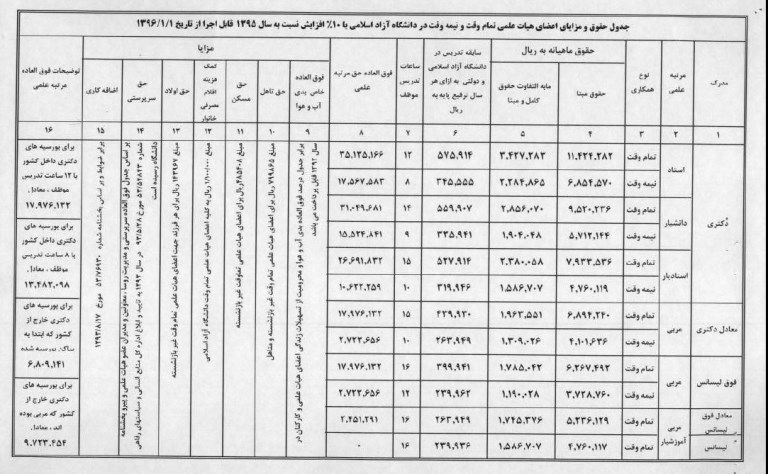 جدول حقوق و مزایای اعضای هیات علمی تمام وقت و نیمه وقت در دانشگاه آزاد اسلامی با ۱۰٪ افزایش نسبت به سال ۱۳۹۵ قابل اجرا از تاریخ ۱۳۹۶/۱/۱
مدرک
مرتبه علمی
نوع همکاری
حقوق ماهیانه به ریال
حقوق مبنا
مابه التفاوت حقوق کامل و مبنا
سابقه تدریس در دانشگاه آزاد اسلامی و دولتی به ازای هر سال ترفیع پایه به ریال
ساعات تدریس موظف
فوق العاده حق مرتبه علمی
مزایا
فوق العاده خاص بدی آب و هوا
حق تاهل
حق مسکن
کمک هزینه اقلام مصرفی خانوار
حق اولاد
حق سرپرستی
اضافه کاری
توضیحات فوق العاده مرتبه علمی
۱ ۲ ۳ ۴ ۵ ۶ ۷ ۸ ۹ ۱۰ ۱۱ ۱۲ ۱۳ ۱۴ ۱۵ ۱۶
دکتری استاد تمام وقت ۱۱,۴۲۴,۲۸۲ ۳,۴۲۷,۲۸۲ ۵۷۵,۹۱۴ ۱۲ ۳۵,۱۳۵,۱۶۶
نیمه وقت ۶,۸۵۴,۵۷۰ ۲,۲۸۴,۸۶۵ ۳۴۵,۵۵۵ ۸ ۱۷,۵۶۷,۵۸۳
دانشیار تمام وقت ۹,۵۲۰,۲۳۶ ۲,۸۵۶,۰۷۰ ۵۵۹,۹۰۷ ۱۴ ۳۱,۰۴۹,۶۸۱
نیمه وقت ۵,۷۱۲,۱۴۴ ۱,۹۰۴,۰۴۸ ۳۳۵,۹۴۱ ۹ ۱۵,۵۲۴,۸۴۱
استادیار تمام وقت ۷,۹۳۳,۵۳۶ ۲,۳۸۰,۰۵۸ ۵۲۷,۹۱۴ ۱۵ ۲۶,۶۹۱,۸۳۲
نیمه وقت ۴,۷۶۰,۱۱۹ ۱,۵۸۶,۷۰۷ ۳۱۹,۹۴۶ ۱۰ ۱۰,۶۲۲,۲۵۹
معادل دکتری مربی تمام وقت ۶,۸۹۴,۲۴۰ ۱,۹۶۳,۵۵۱ ۴۳۹,۹۳۰ ۱۵ ۱۷,۹۷۶,۱۳۲
نیمه وقت ۴,۱۰۱,۶۳۶ ۱,۳۰۹,۰۲۶ ۲۶۳,۹۴۹ ۱۰ ۲,۷۲۲,۶۵۶
فوق لیسانس مربی تمام وقت ۶,۲۶۷,۴۹۲ ۱,۷۸۵,۰۴۲ ۳۹۹,۹۴۱ ۱۶ ۱۷,۹۷۶,۱۳۲
نیمه وقت ۳,۷۲۸,۷۶۰ ۱,۱۹۰,۰۲۸ ۲۳۹,۹۶۲ ۱۲ ۲,۷۲۲,۶۵۶
معادل فوق لیسانس مربی آموزشیار تمام وقت ۵,۲۳۶,۱۲۹ ۱,۷۴۵,۳۷۶ ۲۶۳,۹۴۹ ۱۶ ۲,۴۵۱,۲۹۱
لیسانس تمام وقت ۴,۷۶۰,۱۱۷ ۱,۵۸۶,۷۰۷ ۲۳۹,۹۳۶ ۱۶ ۰
برابر جدول درصد فوق العاده بدی آب و هوا و محرومیت از تسهیلات زندگی اعضای هیات علمی و کارکنان در
سال ۱۳۹۲ قابل پرداخت می باشد.
مبلغ ۷۹۹۸۶۵ ریال برای اعضای هیات علمی تمام وقت غیر بازنشسته و متاهل
ریال برای اعضای هیات علمی تمام وقت غیر بازنشسته
مبلغ ۱/۱۰۰/۰۰۰ ریال به کلیه اعضای هیات علمی تمام وقت دانشگاه آزاد اسلامی
مبلغ ۱۴۳۹۶۷ ریال برای هر فرزند جهت اعضای هیات علمی تمام وقت غیر بازنشسته
بر اساس جدول فوق العاده سرپرستی و مدیریت روسا، معاونین و مدیران عضو هیات علمی و پیرو بخشنامه
شماره ۵۳/۵۲۸۲۳ مورخ ۹۳/۵/۲۸ در سال ۱۳۹۳ به تایید و ابلاغ اداره کل منابع انسانی و سیاستهای رفاهی
دانشگاه رسیده است
برابر ضوابط و بر اساس بخشنامه شماره ۵۳/۷۶۹۳۰ مورخ ۱۳۹۳/۸/۱۷
برای بورسیه های
دکتری داخل کشور
با ۱۲ ساعت تدریس
موظف ، معادل
۱۷,۹۷۶,۱۳۲
برای بورسیه های
دکتری داخل کشور
با ۸ ساعت تدریس
موظف ، معادل
۱۳,۴۸۲,۰۹۸
برای بورسیه های
دکتری خارج از
کشور که ابتدا به
ساکن بورسیه شده
۶,۸۰۹,۱۴۱
برای بورسیه های
دکتری خارج از
کشور که مربی بوده
اند ، معادل
۹,۷۲۳,۴۵۴